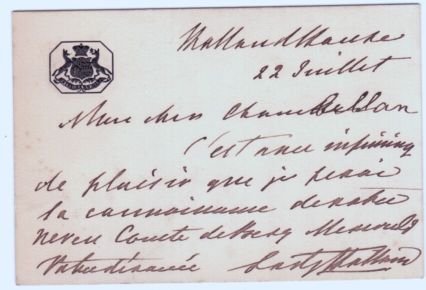 Holland House
22 Juillet
Mon cher Chambellan
C'est avec infiniment
de plaisir que je ferai
la connaissance de votre
neveu Comte de
Lady Holland